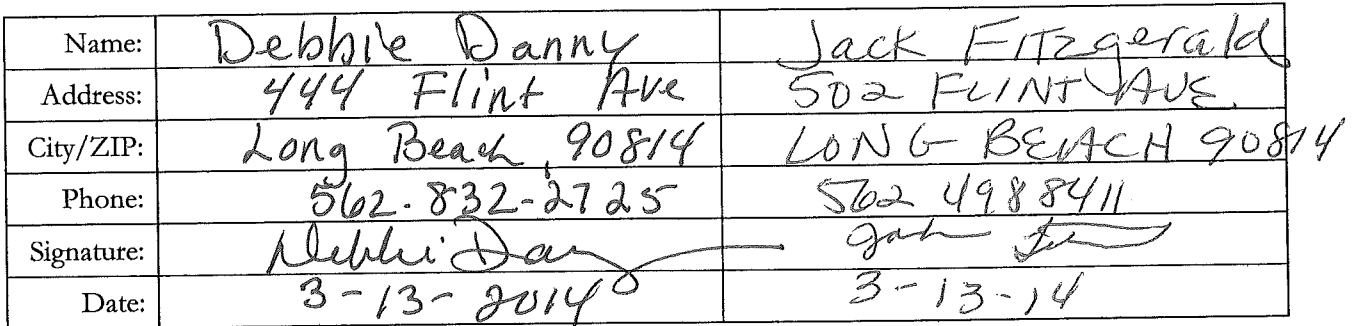 Name: Debbie Danny Jack Fitzgerald
Address: 444 Flint Ave 502 FLINT AVE
City/ZIP: Long Beach, 90814 LONG BEACH 90814
Phone: 562-832-2725 562 498 8411
Signature: Debbi Dan
Date: 3-13-2014 3-13-14